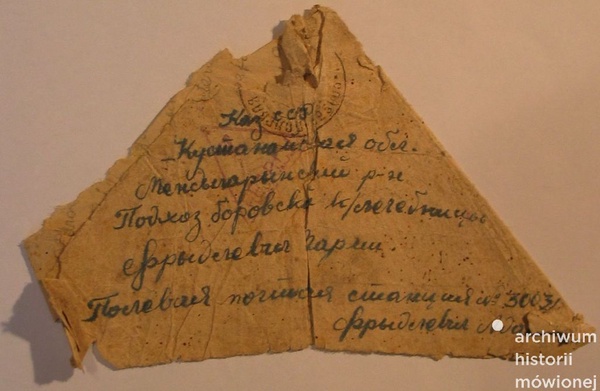 Каз сср
Кустанайская обл.
Менжгарынский р-н
Подхоз боровск к/лечебницы
Фрыдлевич
Полевая почтовая станция № 3003/
Фрыдлевич
archiwum
historii
mówionej